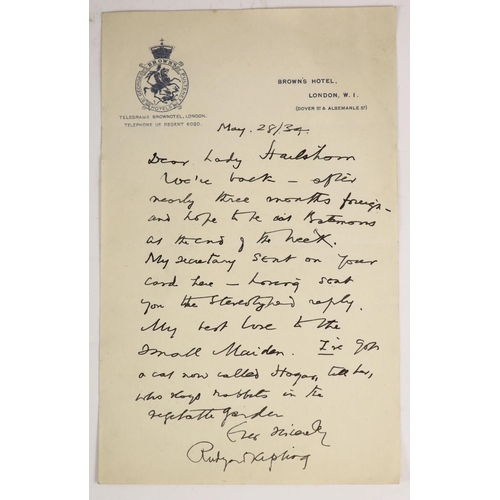 BROWN'S
HOTEL
BROWN'S HOTEL,
LONDON, W. 1.
(DOVER ST & ALBEMARLE ST)
TELEGRAMS BROWNOTEL, LONDON.
TELEPHONE Nº REGENT 6020.
May. 28/34.
Dear Lady Hailsham
We're back – after
nearly three months foreign –
and hope to be at Batemans
at the end of the week.
My secretary sent on your
card here – having sent
you the stereotyped reply.
My best love to the
Small Maiden. I've got
a cat now called Hogan, tell her,
who slays rabbits in the
vegetable garden
Ever sincerely
Rudyard Kipling